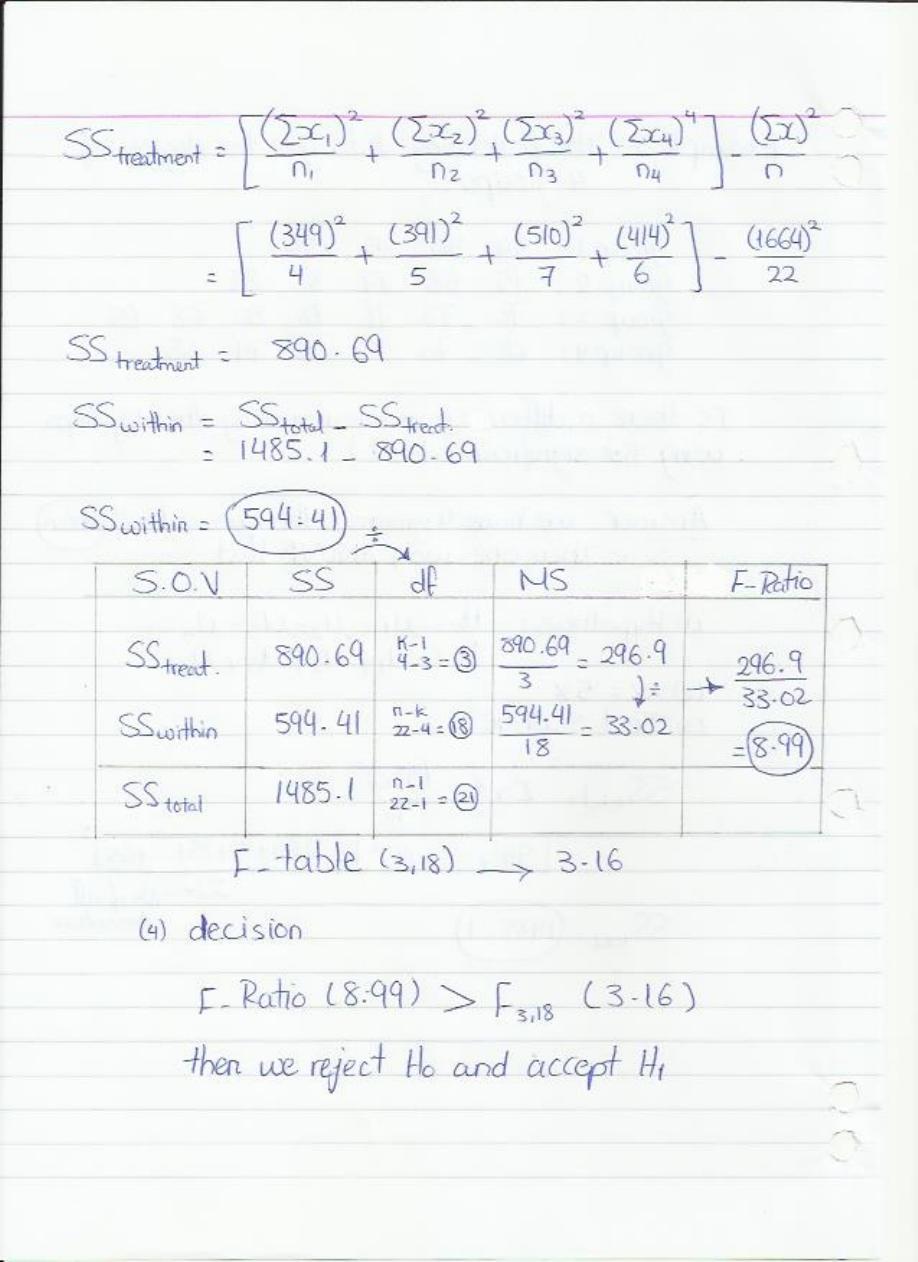 SS treatment = [ (Σx₁)²/n₁ + (Σx₂)²/n₂ + (Σx₃)²/n₃ + (Σx₄)⁴/n₄ ] - (Σx)²/n
= [ (349)²/4 + (391)²/5 + (510)²/7 + (414)²/6 ] - (1664)²/22
SS treatment = 890.69
SS within = SS total - SS treat.
= 1485.1 - 890.69
SS within = 594.41 ÷
S.O.V SS df MS F-Ratio
SS treat. 890.69 k-1 4-3 = 3 890.69/3 = 296.9 ÷ → 296.9/33.02
SS within 594.41 n-k 22-4 = 18 594.41/18 = 33.02 = 8.99
SS total 1485.1 n-1 22-1 = 21
F-table (3,18) → 3.16
(4) decision
F-Ratio (8.99) > F₃,₁₈ (3.16)
then we reject H₀ and accept H₁